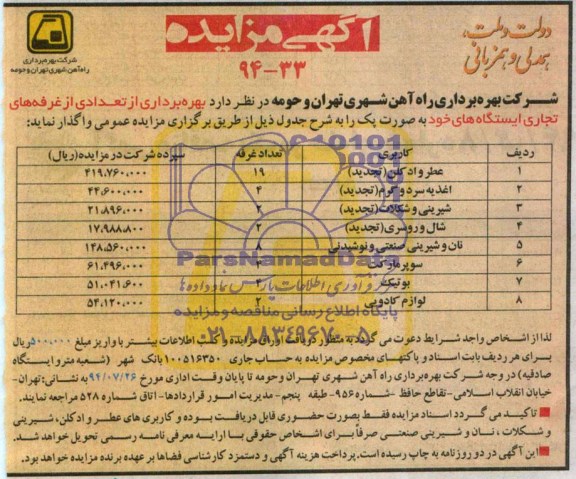 دولت و ملت،
همدلی و همزبانی
آگهی مزایده
۹۴-۳۳
شرکت بهره‌برداری
راه‌آهن شهری تهران و حومه
شرکت بهره‌برداری راه آهن شهری تهران و حومه در نظر دارد بهره‌برداری از تعدادی از غرفه‌های
تجاری ایستگاه های خود به صورت پک را به شرح جدول ذیل از طریق برگزاری مزایده عمومی واگذار نماید:
ردیف کاربری تعداد غرفه سپرده شرکت در مزایده (ریال)
۱ عطر و ادکلن (تجدید) ۱۹ ۴۱۹,۷۶۰,۰۰۰
۲ اغذیه سرد و گرم (تجدید) ۴ ۴۴,۶۰۰,۰۰۰
۳ شیرینی و شکلات (تجدید) ۲ ۲۱,۸۹۶,۰۰۰
۴ شال و روسری (تجدید) ۲ ۱۷,۹۸۸,۸۰۰
۵ نان و شیرینی صنعتی و نوشیدنی ۸ ۱۴۸,۵۶۰,۰۰۰
۶ سوپرمارکت ۶۱,۴۹۶,۰۰۰
۷ بوتیک ۵۱,۰۴۱,۶۰۰
۸ لوازم کادویی ۲ ۵۴,۱۲۰,۰۰۰
ParsNamadData
پایگاه اطلاع رسانی مناقصه و مزایده
۰۲۱-۸۸۳۴۹۶۷۰-۵
لذا از اشخاص واجد شرایط دعوت می گردد به منظور دریافت اوراق مزایده و کسب اطلاعات بیشتر با واریز مبلغ ۵۰۰,۰۰۰ ریال
برای هر ردیف بابت اسناد و پاکتهای مخصوص مزایده به حساب جاری ۱۰۰۵۱۶۳۵۰ بانک شهر (شعبه مترو ایستگاه
صادقیه) در وجه شرکت بهره‌برداری راه آهن شهری تهران و حومه تا پایان وقت اداری مورخ ۹۴/۰۷/۲۶ به نشانی: تهران-
خیابان انقلاب اسلامی- تقاطع حافظ - شماره ۹۵۶- طبقه پنجم- مدیریت امور قراردادها- اتاق شماره ۵۲۸ مراجعه نمایند.
تاکید می گردد اسناد مزایده فقط بصورت حضوری قابل دریافت بوده و کاربری های عطر و ادکلن، شیرینی
و شکلات، نان و شیرینی صنعتی صرفاً برای اشخاص حقوقی با ارایه معرفی نامه رسمی تحویل خواهد شد.
این آگهی در دو روزنامه به چاپ رسیده است. پرداخت هزینه آگهی و دستمزد کارشناسی فضاها بر عهده برنده مزایده خواهد بود.